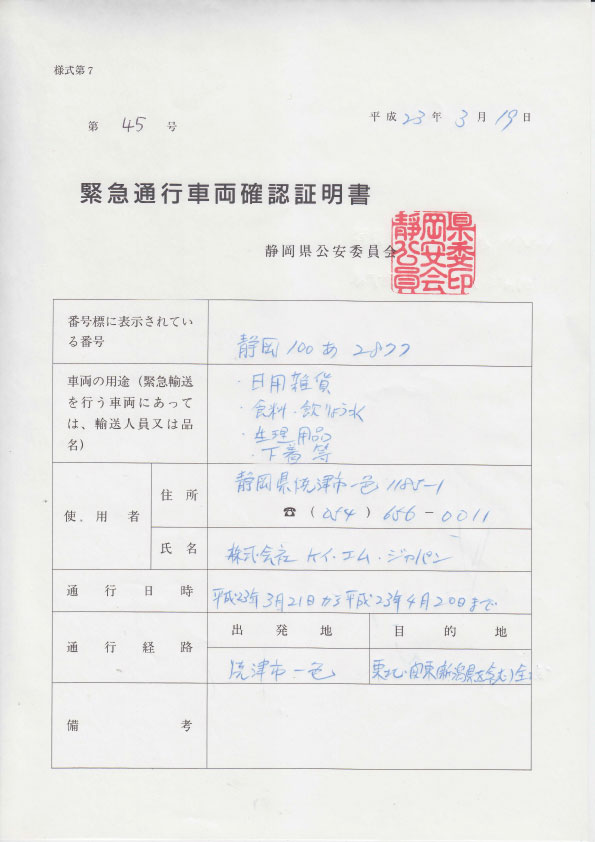 様式第7
第 45 号
平成 23 年 3 月 19 日
緊急通行車両確認証明書
静岡県公安委員会
静岡県公安委員会印
番号標に表示されている番号
静岡 100 あ 2877
車両の用途（緊急輸送を行う車両にあっては、輸送人員又は品名）
・日用雑貨
・食料・飲りょう水
・生理用品
・下着 等
使用者
住所
静岡県焼津市一色 1185-1
☎（054）656-0011
氏名
株式会社 ケイ・エム・ジャパン
通行日時
平成23年3月21日から平成23年4月20日まで
通行経路
出発地
目的地
焼津市一色
東北・関東(新潟県を含む)全
備考